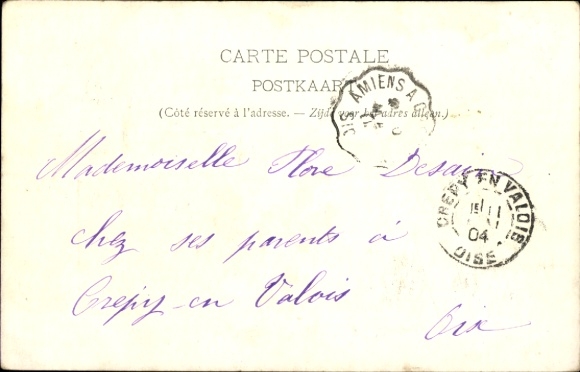 CARTE POSTALE
POSTKAART
(Côté réservé à l'adresse. — Zijde voor het adres alleen.)
AMIENS A C
Mademoiselle Flore
chez ses parents à
Crépy-en Valois
Oise
CREPY EN VALOIS
11
04
OISE